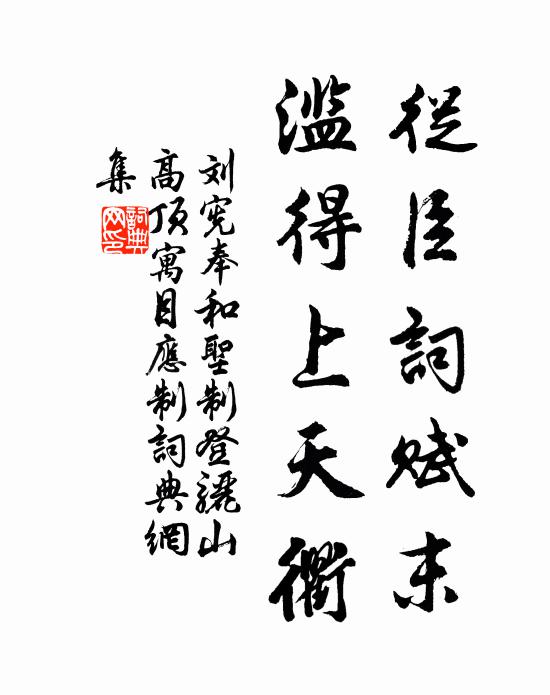 從臣詞賦末
濫得上天衢
刘宪奉和聖制登驪山
高頂寓目應制詞典網
集
詞典网印